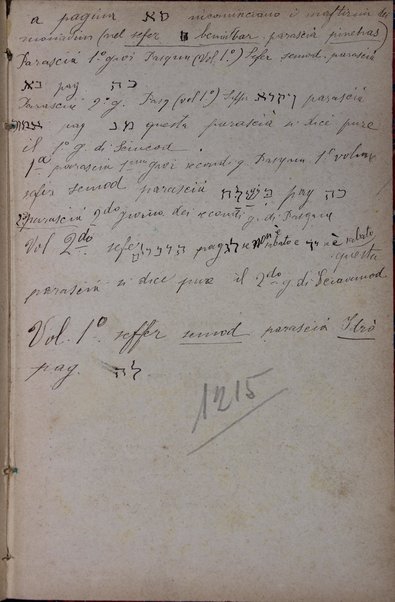 a pagina סא incominciano i maftirim dei
moadim (nel sefer bemidbar parascià pinehas)
Parascià 1° giorno Pasqua (Vol. 1°) Sefer semod parascià
בא pag כה
Parascià 2° g. Pasq (vol 1°) Seffer ויקרא parascià
אמר pag מג questa parascià si dice pure
il 1° g. di Sucod
1a parascià 1mo giorni secondi g. Pasqua 1° volume
sefer semod parascià בשלח pag כה
2° parascià 2do giorno dei secondi g. di Pasqua
Vol 2do sefer הדברים pag לג se non è sabato e se è sabato
questa
parascià si dice pure il 2do g. di Sciavuod
Vol. 1° seffer semod parascià Idrò
pag. לה
1215